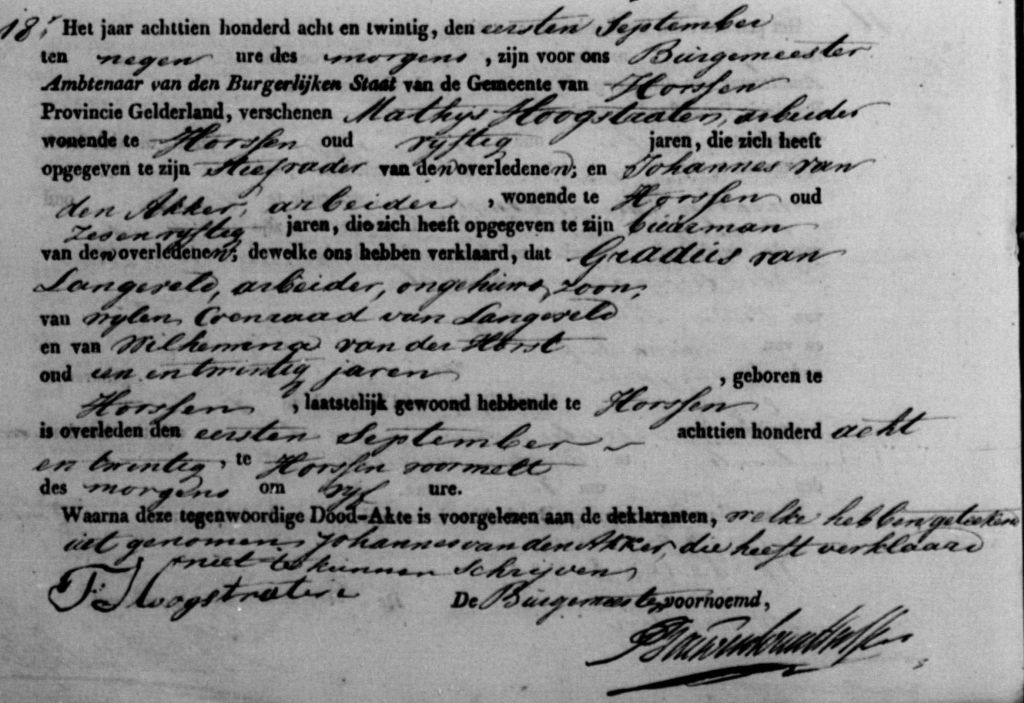 18. Het jaar achttien honderd acht en twintig, den eersten September
ten negen ure des morgens, zijn voor ons Burgemeester
Ambtenaar van den Burgerlijken Staat van de Gemeente van Horssen
Provincie Gelderland, verschenen Mathijs Hoogstraten, arbeider
wonende te Horssen oud vyftig jaren, die zich heeft
opgegeven te zijn steefvader van den overledenen; en Johannes van
den Akker, arbeider, wonende te Horssen oud
zesenvyftig jaren, die zich heeft opgegeven te zijn buurman
van den overledenen; dewelke ons hebben verklaard, dat Gradus van
Langeveld, arbeider, ongehuwd, zoon,
van wylen Coenraad van Langeveld
en van Wilhemina van der Horst
oud een en twintig jaren, geboren te
Horssen, laatstelijk gewoond hebbende te Horssen
is overleden den eersten September achttien honderd acht
en twintig, te Horssen voormelt
des morgens om vyf ure.
Waarna deze tegenwoordige Dood-Akte is voorgelezen aan de deklaranten, welke hebben geteekend
uitgenomen Johannes van den Akker, die heeft verklaard
niet te kunnen schryven
Hoogstraten De Burgemeester, voornoemd,